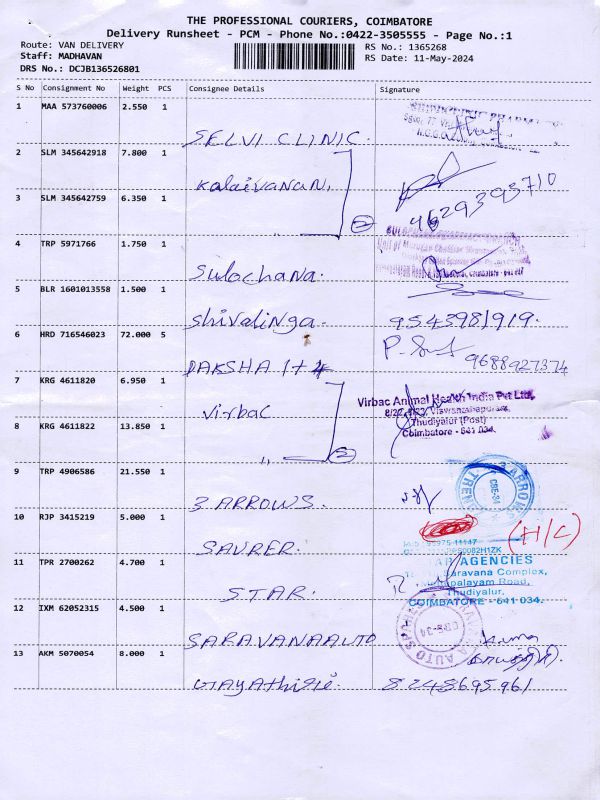 THE PROFESSIONAL COURIERS, COIMBATORE
Delivery Runsheet - PCM - Phone No.:0422-3505555 - Page No.:1
Route: VAN DELIVERY RS No.: 1365268
Staff: MADHAVAN RS Date: 11-May-2024
DRS No.: DCJB136526801
S No Consignment No Weight PCS Consignee Details Signature
1 MAA 573760006 2.550 1
SELVI CLINIC.
2 SLM 345642918 7.800 1
Kalaivanan,
3 SLM 345642759 6.350 1
2
4629393710
4 TRP 5971766 1.750 1
Sulochana.
5 BLR 1601013558 1.500 1
Shivalinga. 9543981919.
6 HRD 716546023 72.000 5
9688927374
DAKSHA 1+4
7 KRG 4611820 6.950 1
Virbac
Virbac Animal Health India Pvt Ltd,
Thudiyalur (Post)
Coimbatore - 641 034.
8 KRG 4611822 13.850 1
,, 2
9 TRP 4906586 21.550 1
3 ARROWS.
3 ARROWS
CBE-34
10 RJP 3415219 5.000 1
(H/C)
SAVRER.
11 TPR 2700262 4.700 1
AGENCIES
Saravana Complex,
Road,
Thudiyalur,
COIMBATORE - 641 034.
STAR.
12 IXM 62052315 4.500 1
SARAVANAAUTO
CBE-34
13 AKM 5070054 8.000 1
Gayathiri. 8248695961